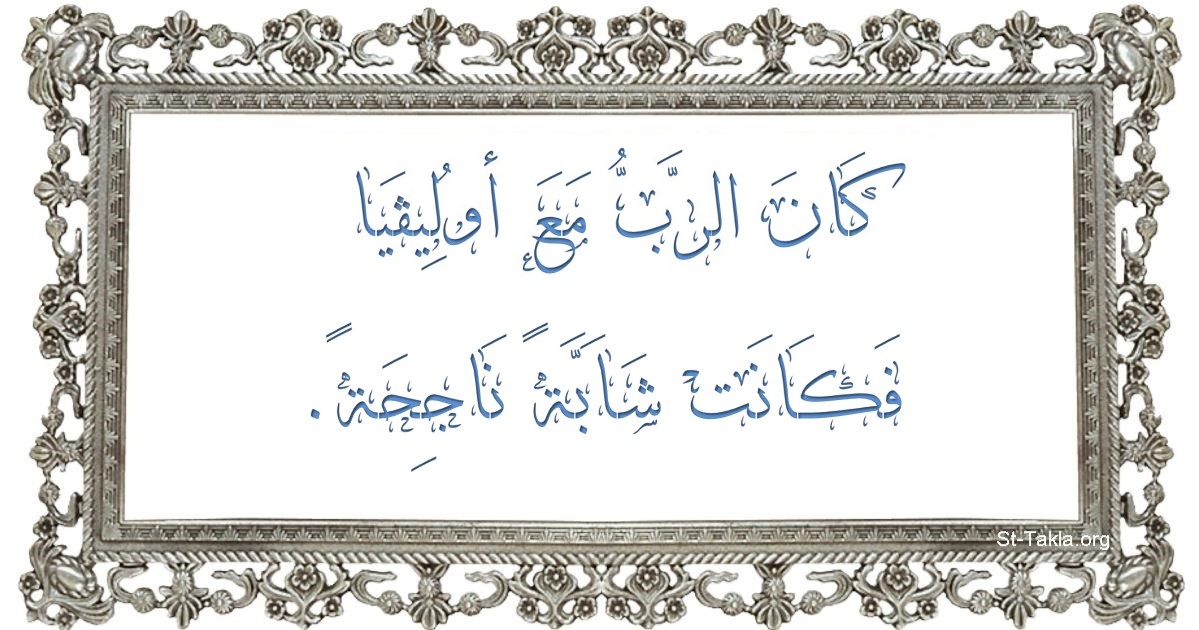 كَانَ الرَّبُّ مَعَ أولِيڤيَا
فَكَانَتْ شَابَّةً نَاجِحَةً.
St-Takla.org